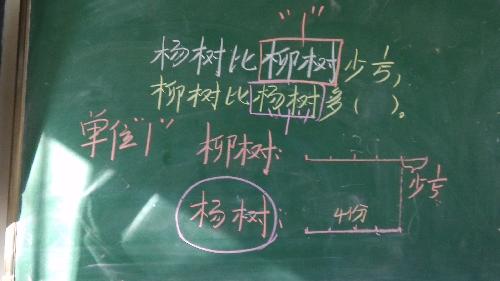 “1”
杨树比柳树少1/5,
柳树比杨树多( )。
单位“1”
柳树:
少1/5
杨树:
4份